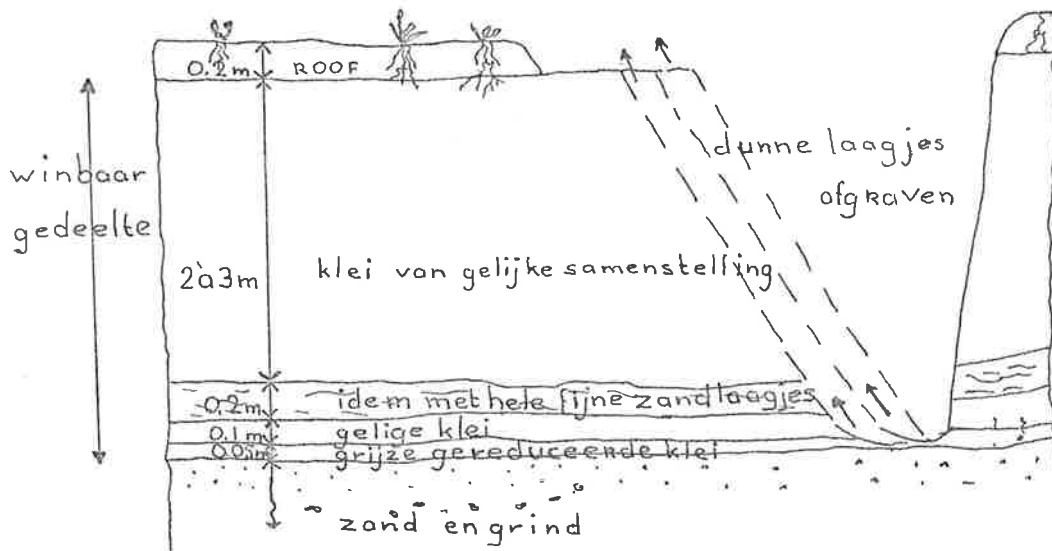 0.2m ROOF
winbaar
gedeelte
dunne laagjes
ofgraven
2à3m
klei van gelijke samenstelling
0.2m idem met hele fijne zandlaagjes
0.1m gelige klei
grijze gereduceende klei
zand en grind